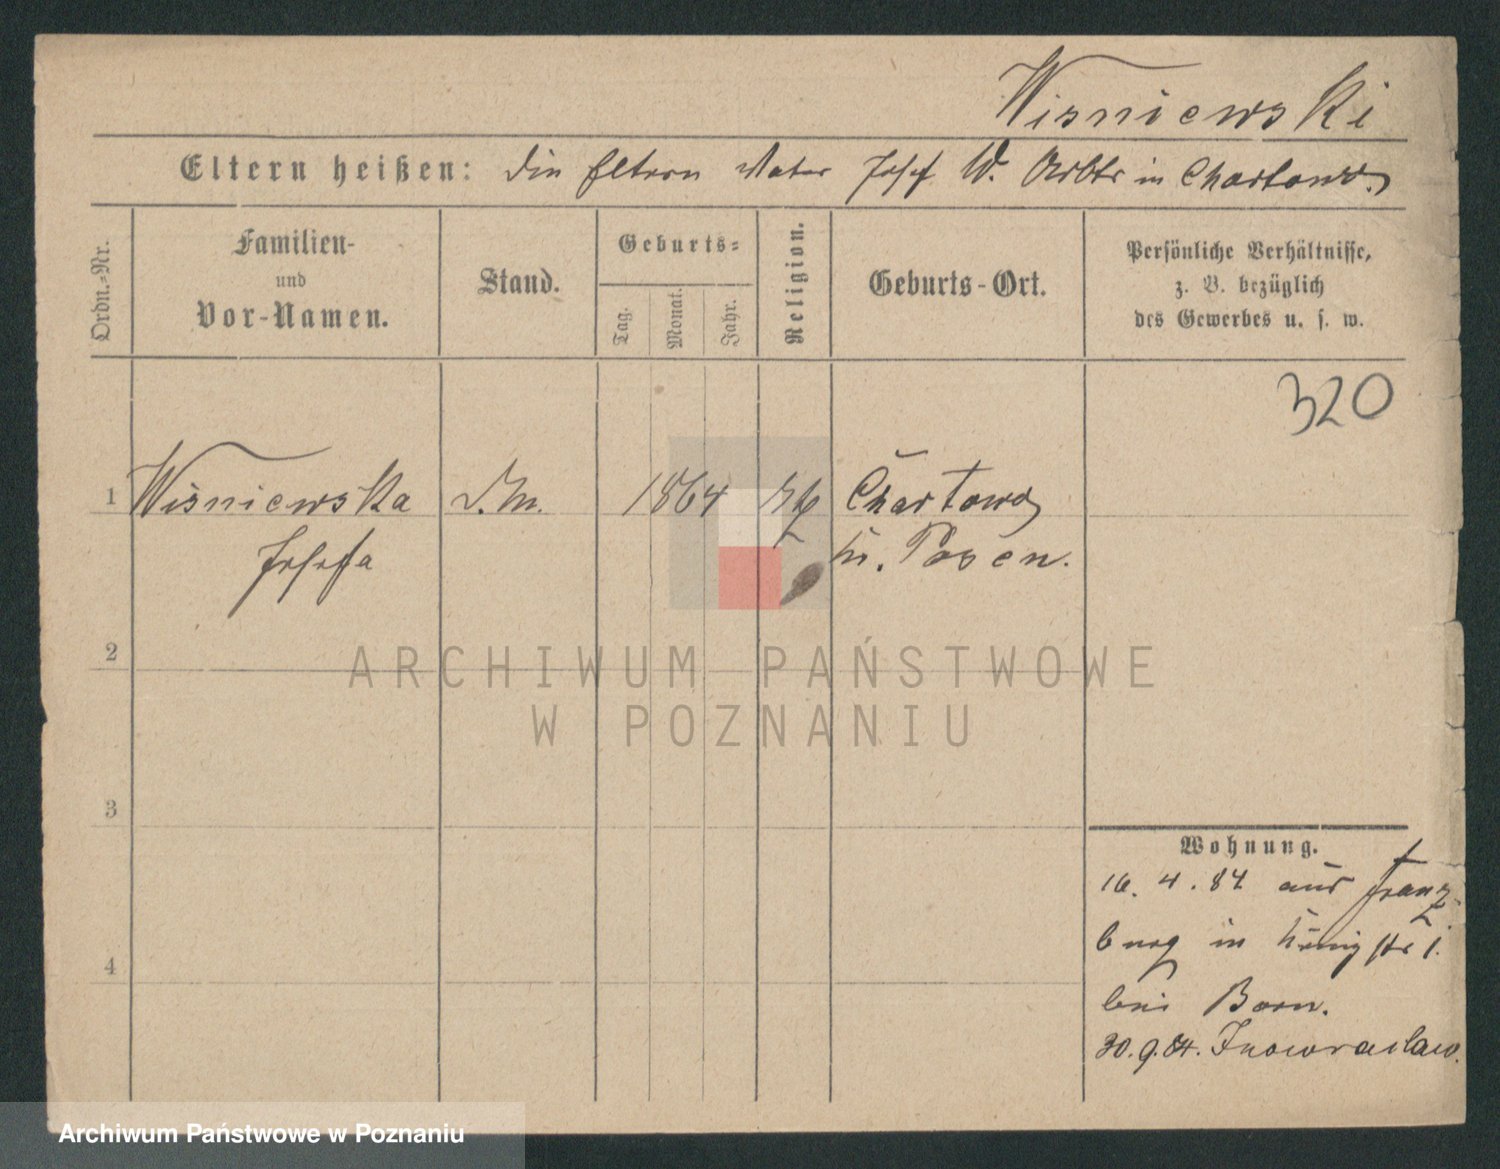 Wisniewski
Eltern heißen: Die Eltern Vater Josef W. Arbtr in Chartowo.
Ordn.-Nr.
Familien-
und
Vor-Namen.
Stand.
Geburts-
Tag.
Monat.
Jahr.
Religion.
Geburts-Ort.
Persönliche Verhältnisse,
z. B. bezüglich
des Gewerbes u. s. w.
320
1 Wisniewska D.M. 1864 Chartowo
Josefa Kr. Posen.
2
ARCHIWUM PAŃSTWOWE
W POZNANIU
3
4
Wohnung.
16. 4. 84 aus Franz
burg in Königstr 1.
bei Born.
30.9.84. Inowraclaw.
Archiwum Państwowe w Poznaniu